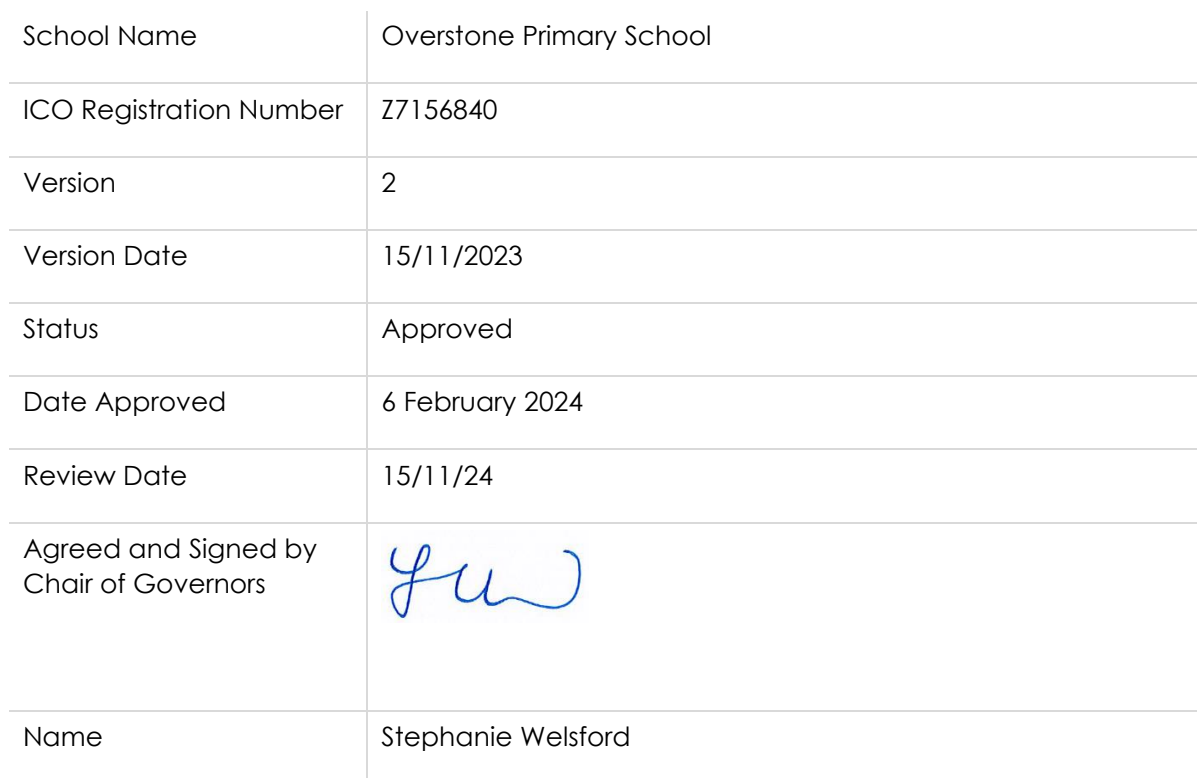 School Name Overstone Primary School
ICO Registration Number Z7156840
Version 2
Version Date 15/11/2023
Status Approved
Date Approved 6 February 2024
Review Date 15/11/24
Agreed and Signed by
Chair of Governors
Name Stephanie Welsford